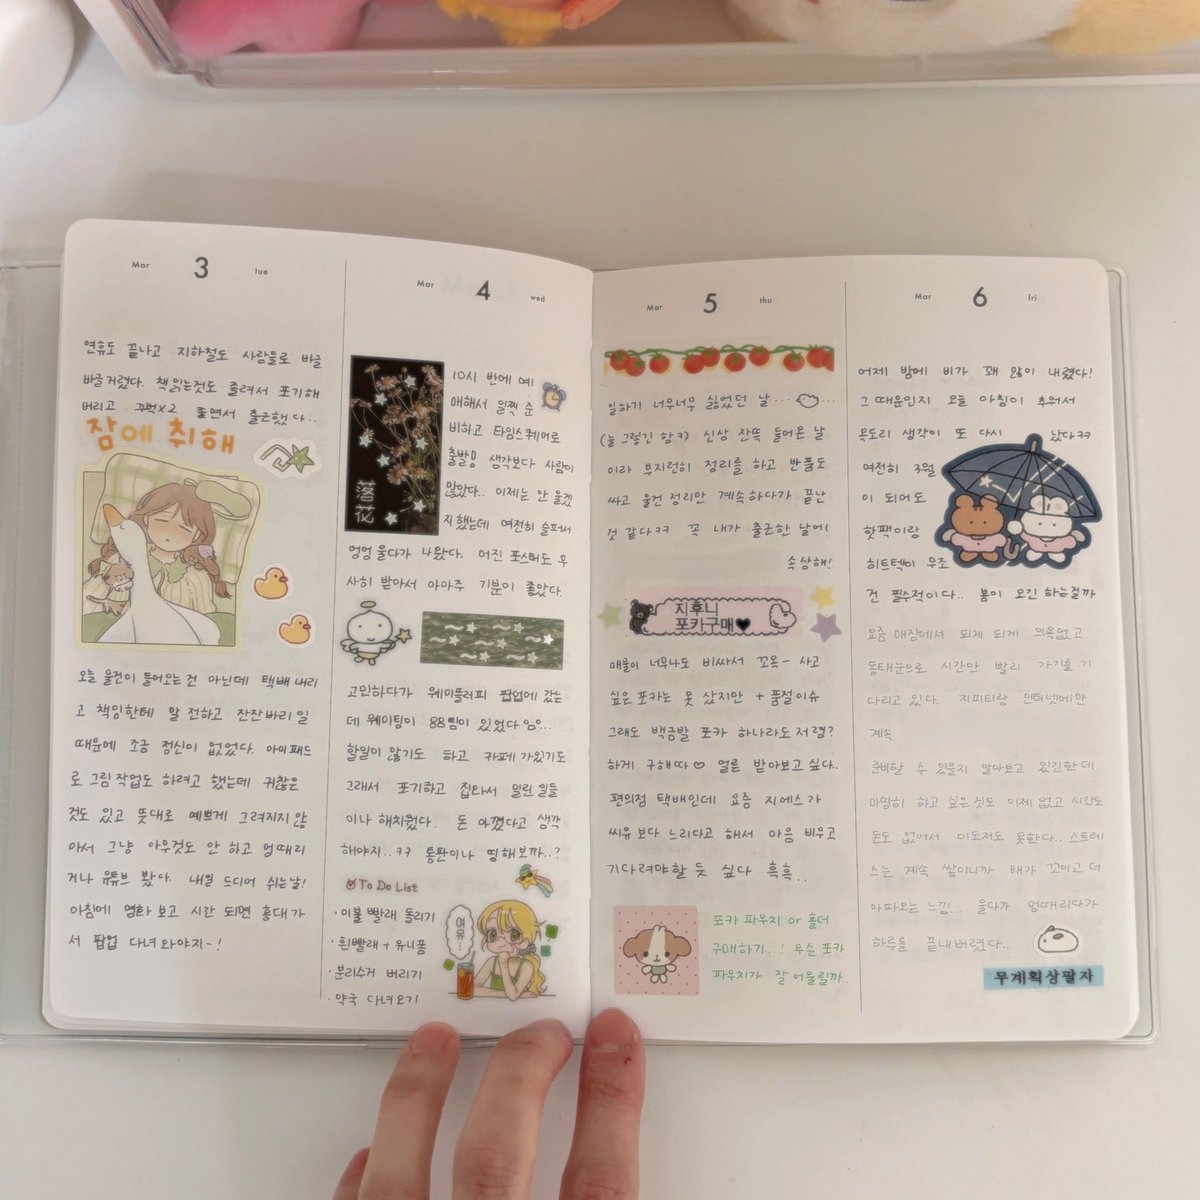 Mar 3 tue
연휴도 끝나고 지하철도 사람들로 바글
바글거렸다. 책읽는것도 졸려서 포기해
버리고 꾸벅x2 졸면서 출근했다...
잠에 취해
오늘 물건이 들어오는건 아닌데 택배 내리
고 책임한테 말 전하고 잔잔바리 일
때문에 조금 정신이 없었다. 아이패드
로 그림작업도 하려고 했는데 귀찮은
것도 있고 뜻대로 예쁘게 그려지지 않
아서 그냥 아무것도 안 하고 멍때리
거나 유튜브 봤다. 내일 드디어 쉬는날!
아침에 영화 보고 시간 되면 홍대가
서 팝업 다녀와야지~!
Mar 4 wed
10시 반에 예
매해서 일찍 준
비하고 타임스퀘어로
출발!! 생각보다 사람이
많았다.. 이제는 안 울겠
지했는데 여전히 슬퍼서
엉엉 울다가 나왔다. 어진 포스터도 무
사히 받아서 아아주 기분이 좋았다.
落花
고민하다가 웨이플러피 팝업에 갔는
데 웨이팅이 88팀이 있었다
할일이 많기도 하고 카페 가있기도
그래서 포기하고 집와서 밀린 일들
이나 해치웠다. 돈 아꼈다고 생각
해야지..ㅋㅋ 통판이나 띵해보까..?
To Do List
· 이불 빨래 돌리기
· 흰빨래 + 유니폼
· 분리수거 버리기
· 약국 다녀오기
여유...
Mar 5 thu
일하기 너무너무 싫었던 날...
(늘 그렇긴 함ㅋ) 신상 잔뜩 들어온 날
이라 부지런히 정리를 하고 반품도
싸고 물건 정리만 계속하다가 끝난
것 같다ㅋㅋ 꼭 내가 출근한 날에
속상해!
지후니
포카구매♥
매물이 너무나도 비싸서 꼬옥~ 사고
싶은 포카는 못 샀지만 + 품절이슈
그래도 백금발 포카 하나라도 저렴?
하게 구해따♡ 얼른 받아보고 싶다..
편의점 택배인데 요즘 지에스가
씨유보다 느리다고 해서 마음 비우고
기다려야할 듯 싶다 흑흑..
포카 파우치 or 홀더
구매하기..! 유슨 포카
파우치가 잘어울릴까..
Mar 6 fri
어제 밤에 비가 꽤 많이 내렸다!
그 때문인지 오늘 아침이 추워서
목도리 생각이 또 다시 났다ㅋㅋ
여전히 3월
이 되어도
핫팩이랑
히트텍이 무조
건 필수적이다.. 봄이 오긴 하는걸까
요즘 매장에서 되게 되게 의욕없고
동태눈으로 시간만 빨리 가기를 기
다리고 있다. 지피티랑 인터넷에만
계속
준비할 수 있을지 알아보고 있긴한데
마땅히 하고 싶은것도 이제 없고 시간도
돈도 없어서 이도저도 못한다.. 스트레
스는 계속 쌓이니까 배가 꼬이고 더
아파오는 느낌... 울다가 멍때리다가
하루를 끝내버렸다..
무계획상팔자